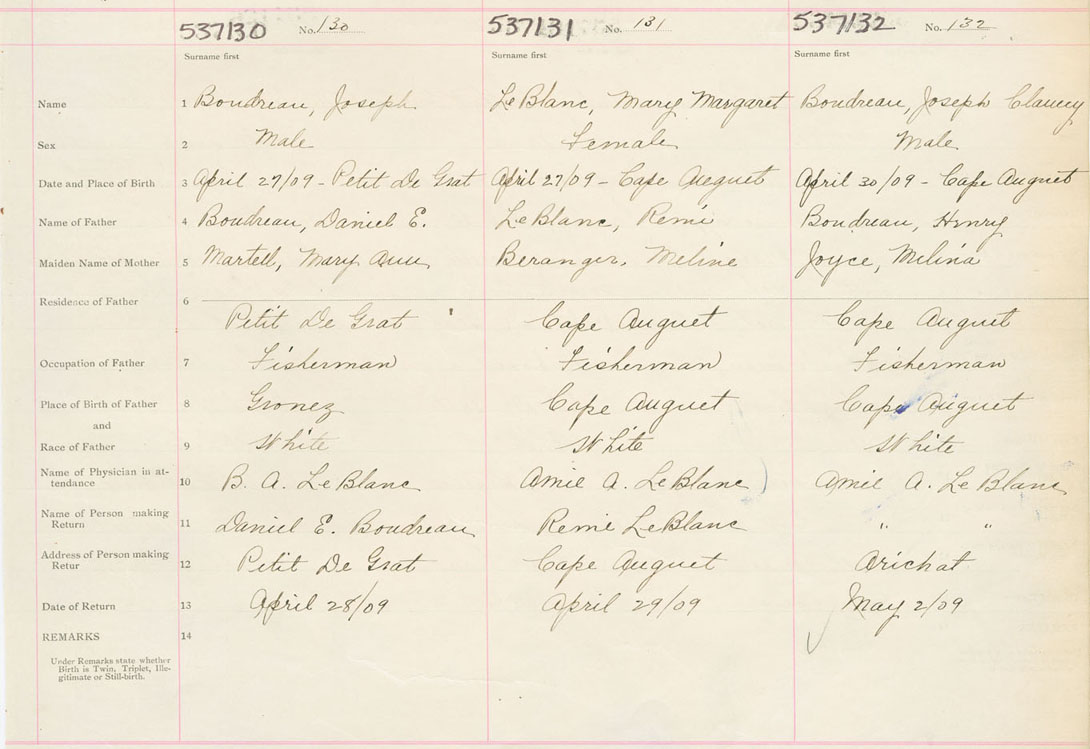 537130 No. 130 537131 No. 131 537132 No. 132
Surname first Surname first Surname first
Name 1 Boudreau, Joseph LeBlanc, Mary Margaret Boudreau, Joseph Clancy
Sex 2 Male Female Male
Date and Place of Birth 3 April 27/09 - Petit De Grat April 27/09 - Cape Auguet April 30/09 - Cape Auguet
Name of Father 4 Boudreau, Daniel E. LeBlanc, Remi Boudreau, Henry
Maiden Name of Mother 5 Martell, Mary Ann Beranger, Meline Joyce, Melina
Residence of Father 6
Petit De Grat Cape Auguet Cape Auguet
Occupation of Father 7 Fisherman Fisherman Fisherman
Place of Birth of Father 8 Gronez Cape Auguet Cape Auguet
and
Race of Father 9 White White White
Name of Physician in at-
tendance 10 B. A. LeBlanc Amie A. LeBlanc Amie A. LeBlanc
Name of Person making
Return 11 Daniel E. Boudreau Remi LeBlanc " "
Address of Person making
Retur 12 Petit De Grat Cape Auguet Arichat
Date of Return 13 April 28/09 April 29/09 May 2/09
REMARKS 14
Under Remarks state whether
Birth is Twin, Triplet, Ille-
gitimate or Still-birth.